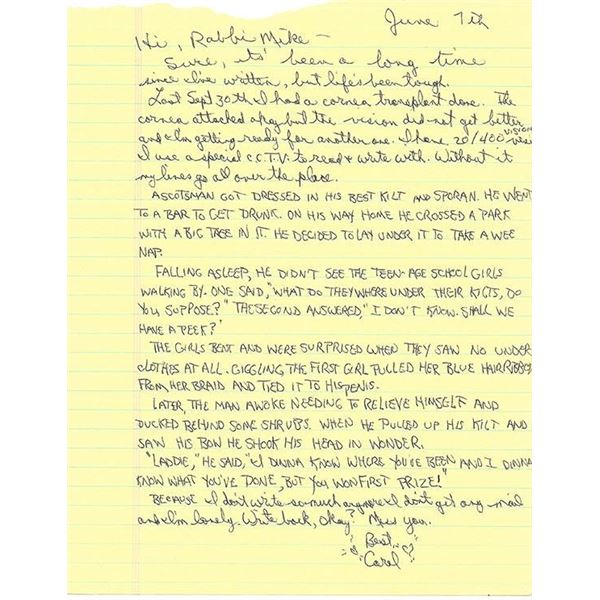 June 7th
Hi, Rabbi Mike –
Sure, its' been a long time
since I've written, but life's been tough.
Last Sept 30th I had a cornea transplant done. The
cornea attached okay but the vision did not get better
and I'm getting ready for another one. I have 20/400 vision
I use a special C.C.T.V. to read & write with. Without it
my lines go all over the place.
A SCOTSMAN GOT DRESSED IN HIS BEST KILT AND SPORAN. HE WENT
TO A BAR TO GET DRUNK. ON HIS WAY HOME HE CROSSED A PARK
WITH A BIG TREE IN IT. HE DECIDED TO LAY UNDER IT TO TAKE A WEE
NAP.
FALLING ASLEEP, HE DIDN'T SEE THE TEEN-AGE SCHOOL GIRLS
WALKING BY. ONE SAID, "WHAT DO THEY WHERE UNDER THEIR KILTS, DO
YOU SUPPOSE?" THE SECOND ANSWERED, "I DON'T KNOW. SHALL WE
HAVE A PEEK?'
THE GIRLS BENT AND WERE SURPRISED WHEN THEY SAW NO UNDER
CLOTHES AT ALL. GIGGLING THE FIRST GIRL PULLED HER BLUE HAIR RIBBON
FROM HER BRAID AND TIED IT TO HIS PENIS.
LATER, THE MAN AWOKE NEEDING TO RELIEVE HIMSELF AND
DUCKED BEHIND SOME SHRUBS. WHEN HE PULLED UP HIS KILT AND
SAW HIS BOW HE SHOOK HIS HEAD IN WONDER.
"LADDIE," HE SAID, "I DINNA KNOW WHERE YOU'VE BEEN AND I DINNA
KNOW WHAT YOU'VE DONE, BUT YOU WON FIRST PRIZE!"
BECAUSE I don't write so much anymore I don't get any mail
and I'm lonely. Write back, okay? Miss you.
Best,
Carol